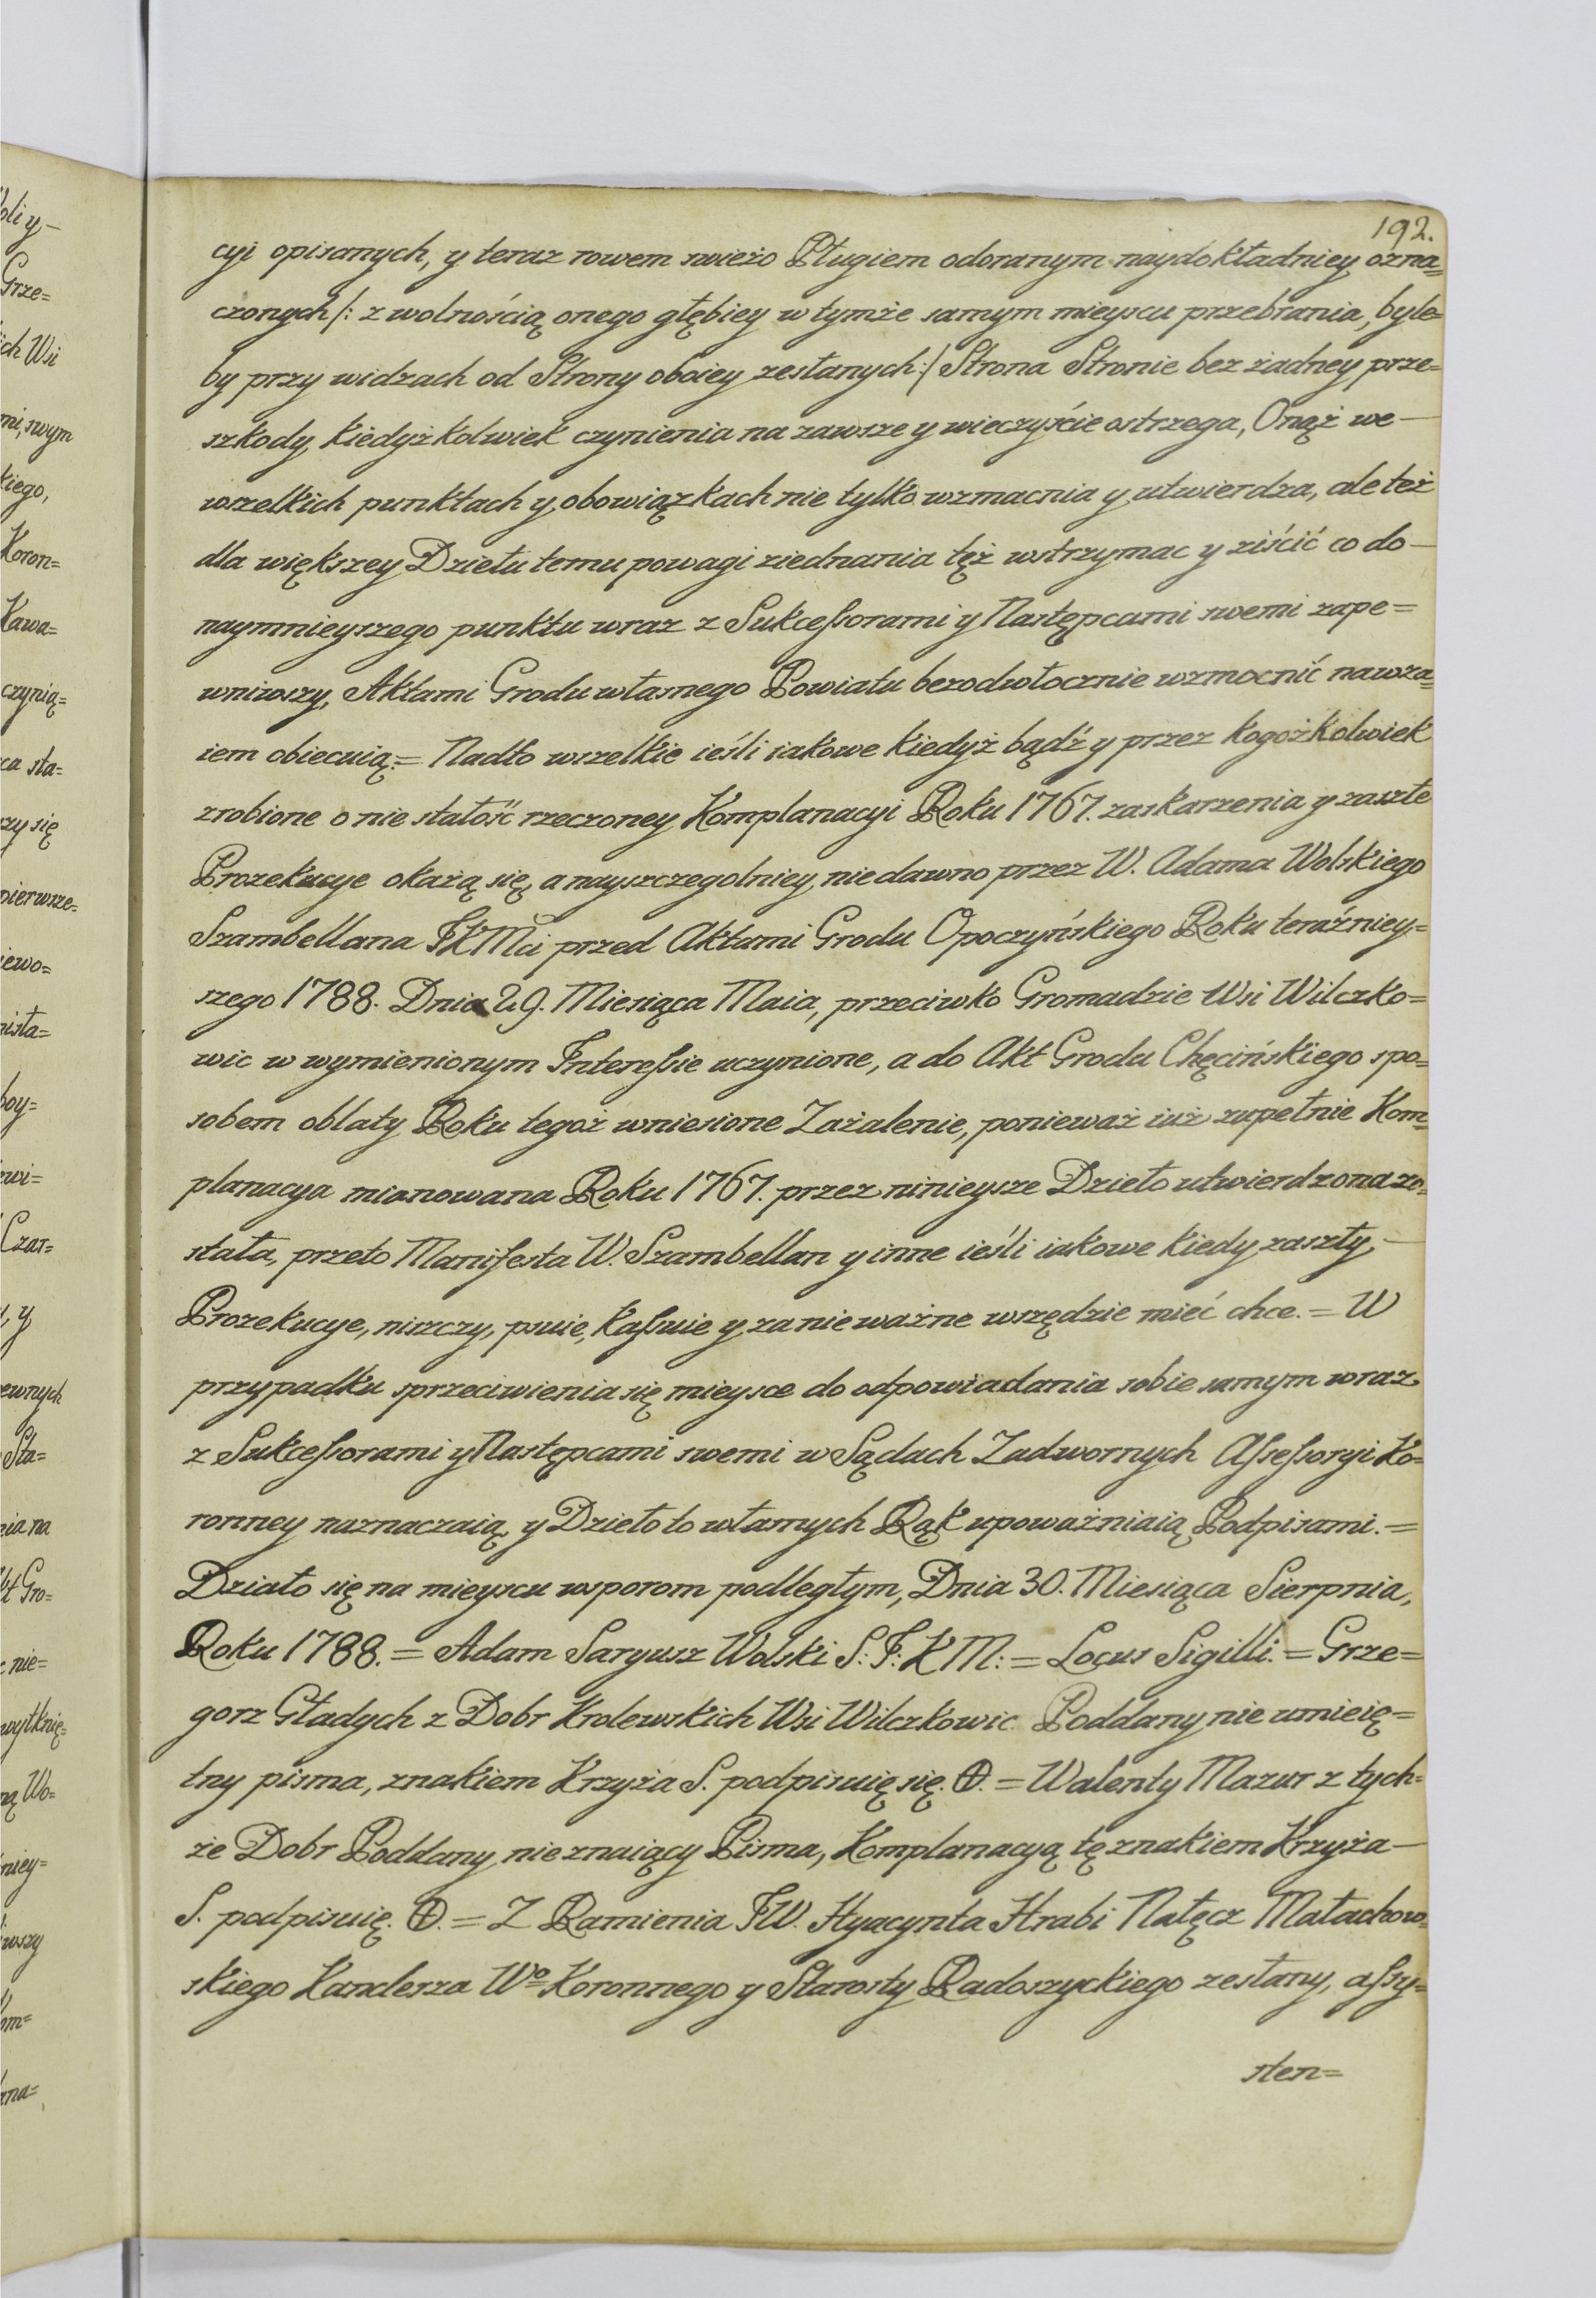 192.
cyi opisanych, y teraz rowem swieżo Pługiem odoranym naydokładniey ozna=
czonych /: z wolnością onego głębiey w tymże samym mieyscu przebrania, byle=
by przy widzach od Strony oboiey zesłanych :/ Strona Stronie bez żadney prze=
szkody, kiedyżkolwiek czynienia na zawsze y wieczyście ostrzega, Onąż we—
wszelkich punktach y obowiązkach nie tylko wzmacnia y utwierdza, ale też
dla większey Dziełu temu powagi ziednania tęż wstrzymac y ziścić co do—
naymnieyszego punktu wraz z Sukceſsorami y Następcami swemi zape=
wniwszy, Aktami Grodu własnego Powiatu bezodwłocznie wzmocnić nawza=
iem obiecuią.= Nadto wszelkie ieśli iakowe kiedyż bądź y przez kogożkolwiek
zrobione o nie stałość rzeczoney Komplanacyi Roku 1767. zaskarzenia y zaszłe
Prozekucye okażą się, a nayszczegolniey, niedawno przez W. Adama Wolskiego
Szambellana JKMci przed Aktami Grodu Opoczyńskiego Roku teraźniey=
szego 1788. Dnia 29. Miesiąca Maia, przeciwko Gromadzie Wsi Wilczko=
wic w wymienionym Intereſsie uczynione, a do Akt Grodu Chęcińskiego spo=
sobem oblaty Roku tegoż wniesione Zażalenie, ponieważ iuż zupełnie Kom=
planacya mianowana Roku 1767. przez ninieysze Dzieło utwierdzona zo=
stała, przeto Manifesta W. Szambellan y inne ieśli iakowe kiedy zaszły,—
Prozekucye, niszczy, psuie, kaſsuie y za nieważne wszędzie mieć chce. = W
przypadku sprzeciwienia się mieysce do odpowiadania sobie samym wraz
z Sukceſsorami y Następcami swemi w Sądach Zadwornych Aſseſsoryi Ko=
ronney naznaczaią, y Dzieło to własnych Rąk upoważniaią Podpisami. =
Działo się na mieyscu wsporom podległym, Dnia 30. Miesiąca Sierpnia,
Roku 1788. = Adam Saryusz Wolski S: J: K M: = Locus Sigilli. = Grze=
gorz Gładych z Dobr Krolewskich Wsi Wilczkowic Poddany nie umieię=
tny pisma, znakiem Krzyża S. podpisuię się. ⊕. = Walenty Mazur z tych=
że Dobr Poddany nieznaiący Pisma, Komplanacyą tę znakiem Krzyża—
S. podpisuię. ⊕. = Z Ramienia JW. Hyacynta Hrabi Nałęcz Małachow=
skiego Kanclerza Wo Koronnego y Starosty Radoszyckiego zesłany, aſsy=
sten=